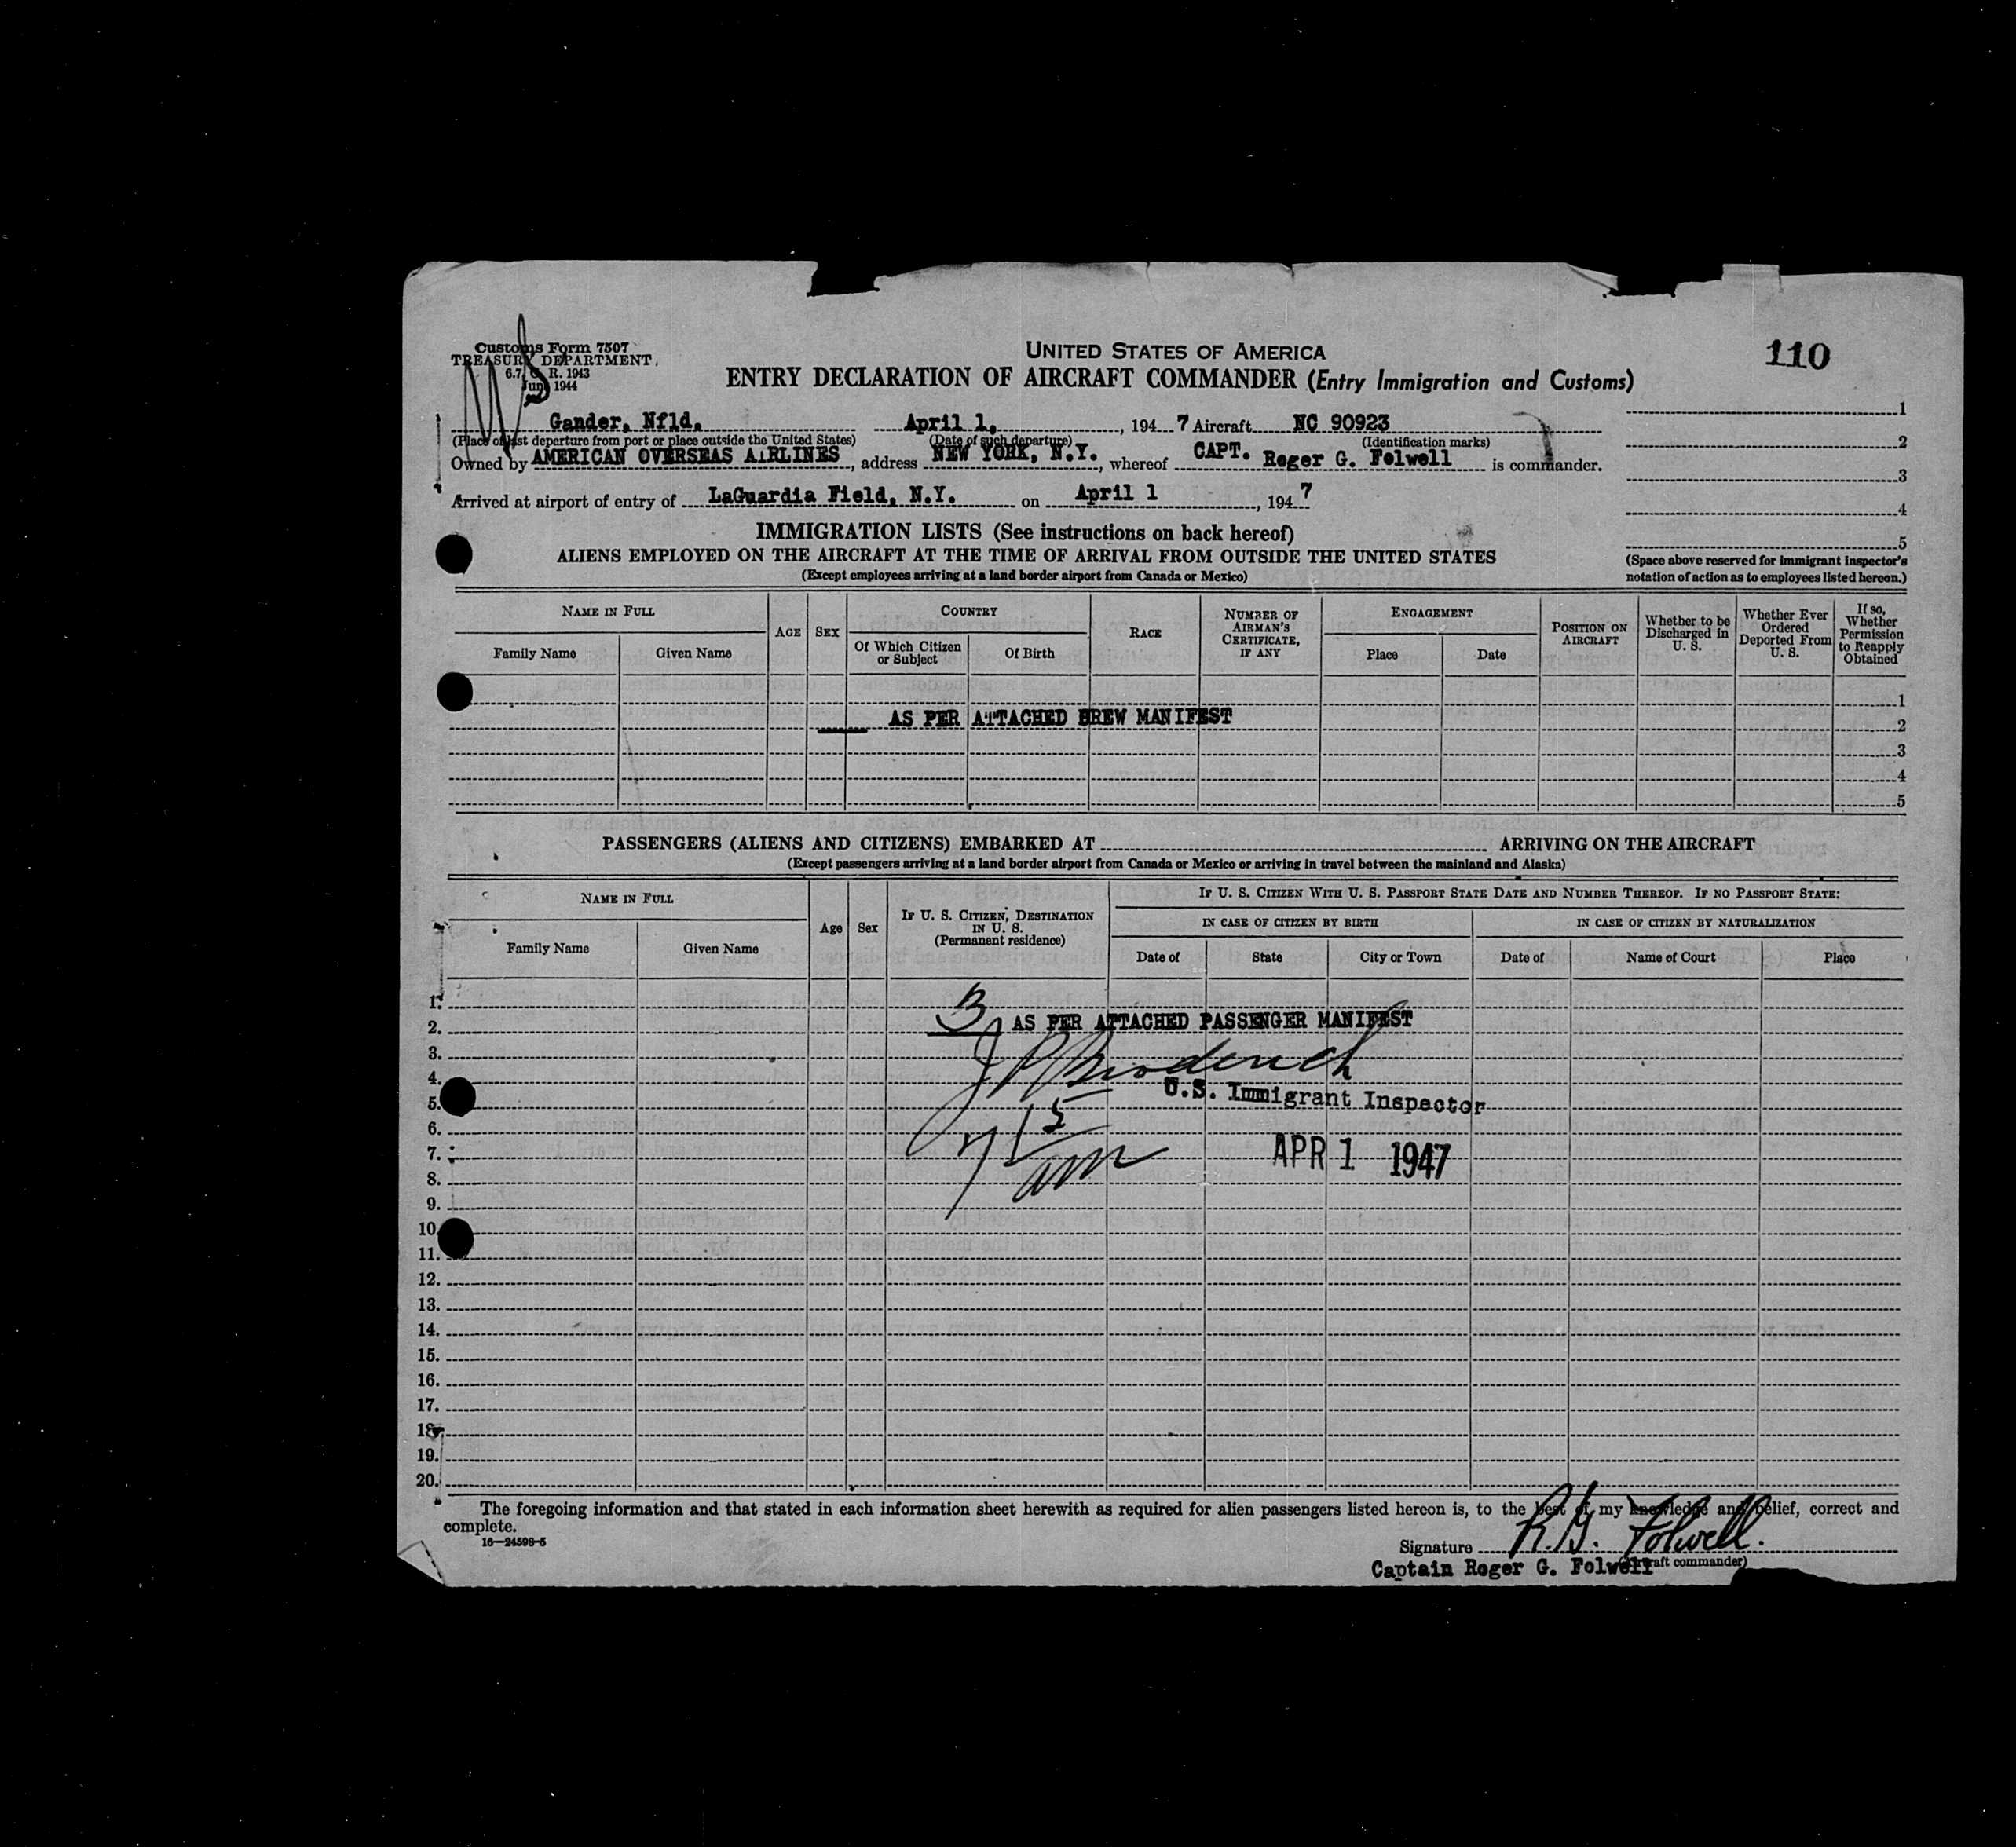 Customs Form 7507
TREASURY DEPARTMENT
R. 1943
1944
UNITED STATES OF AMERICA
110
ENTRY DECLARATION OF AIRCRAFT COMMANDER (Entry Immigration and Customs)
Gander, Nfld. April 1, , 194 7 Aircraft NC 90923 1
(Place of last departure from port or place outside the United States) (Date of such departure) (Identification marks) 2
Owned by AMERICAN OVERSEAS AIRLINES, address NEW YORK, N.Y., whereof CAPT. Roger G. Folwell is commander. 3
Arrived at airport of entry of LaGuardia Field, N.Y. on April 1, 194 7 4
IMMIGRATION LISTS (See instructions on back hereof) 5
ALIENS EMPLOYED ON THE AIRCRAFT AT THE TIME OF ARRIVAL FROM OUTSIDE THE UNITED STATES
(Except employees arriving at a land border airport from Canada or Mexico)
(Space above reserved for immigrant inspector's
notation of action as to employees listed hereon.)
NAME IN FULL
Family Name Given Name
AGE
SEX
COUNTRY
Of Which Citizen or Subject
Of Birth
RACE
NUMBER OF AIRMAN'S CERTIFICATE, IF ANY
ENGAGEMENT
Place Date
POSITION ON AIRCRAFT
Whether to be Discharged in U. S.
Whether Ever Ordered Deported From U. S.
If so, Whether Permission to Reapply Obtained
1
AS PER ATTACHED BREW MANIFEST 2
3
4
5
PASSENGERS (ALIENS AND CITIZENS) EMBARKED AT ARRIVING ON THE AIRCRAFT
(Except passengers arriving at a land border airport from Canada or Mexico or arriving in travel between the mainland and Alaska)
NAME IN FULL
Family Name Given Name
Age
Sex
IF U. S. CITIZEN, DESTINATION IN U. S.
(Permanent residence)
IF U. S. CITIZEN WITH U. S. PASSPORT STATE DATE AND NUMBER THEREOF. IF NO PASSPORT STATE:
IN CASE OF CITIZEN BY BIRTH IN CASE OF CITIZEN BY NATURALIZATION
Date of State City or Town Date of Name of Court Place
1.
2. 3 AS PER ATTACHED PASSENGER MANIFEST
3.
4.
5. U.S. Immigrant Inspector
6.
7. 7 15 am APR 1 1947
8.
9.
10.
11.
12.
13.
14.
15.
16.
17.
18.
19.
20.
The foregoing information and that stated in each information sheet herewith as required for alien passengers listed hereon is, to the best of my knowledge and belief, correct and
complete.
16—24598-5
Signature R. G. Folwell.
(Aircraft commander)
Captain Roger G. Folwell